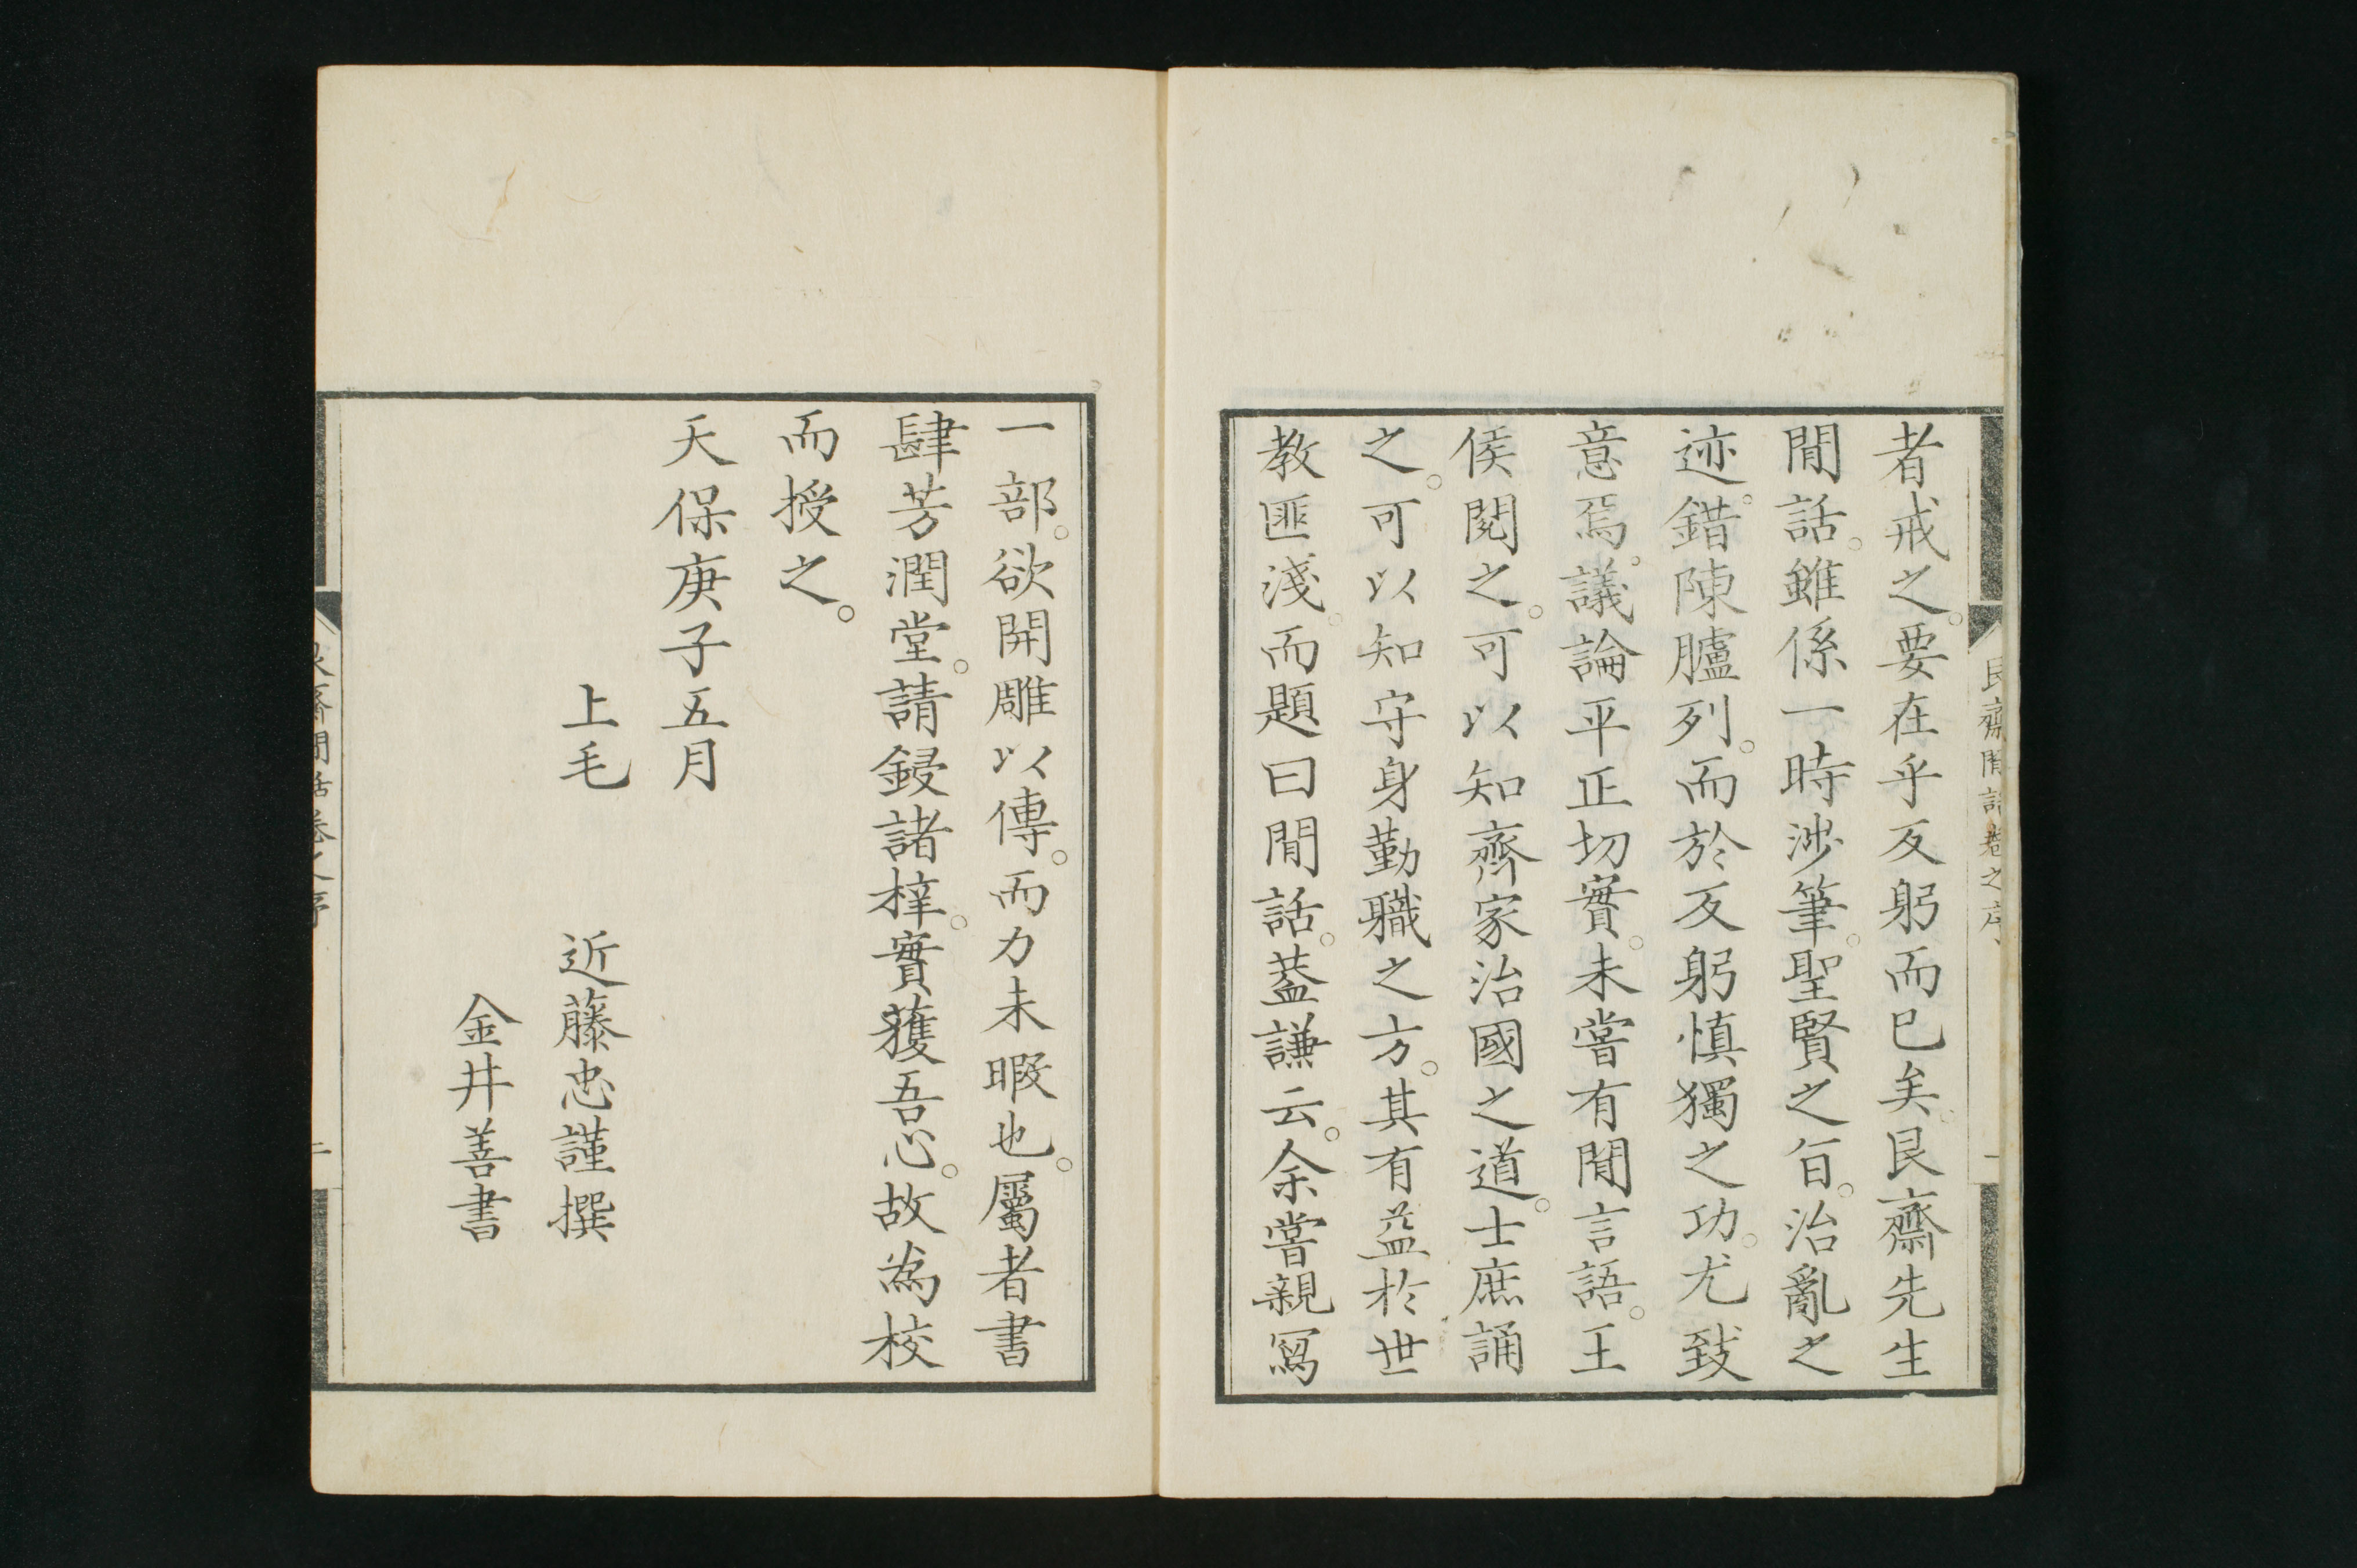 者戒之。要在乎反躬而已矣。艮齋先生
閒話。雖係一時涉筆。聖賢之旨。治亂之
迹。錯陳臚列。而於反躬慎獨之功。尤致
意焉。議論平正切實。未嘗有閒言語。王
侯閱之。可以知齊家治國之道。士庶誦
之。可以知守身勤職之方。其有益於世
教匪淺。而題曰閒話。蓋謙云。余嘗親寫
一部。欲開雕以傳。而力未暇也。屬者書
肆芳潤堂。請鋟諸梓。實獲吾心。故為校
而授之。
天保庚子五月
上毛 近藤忠謹撰
金井善書